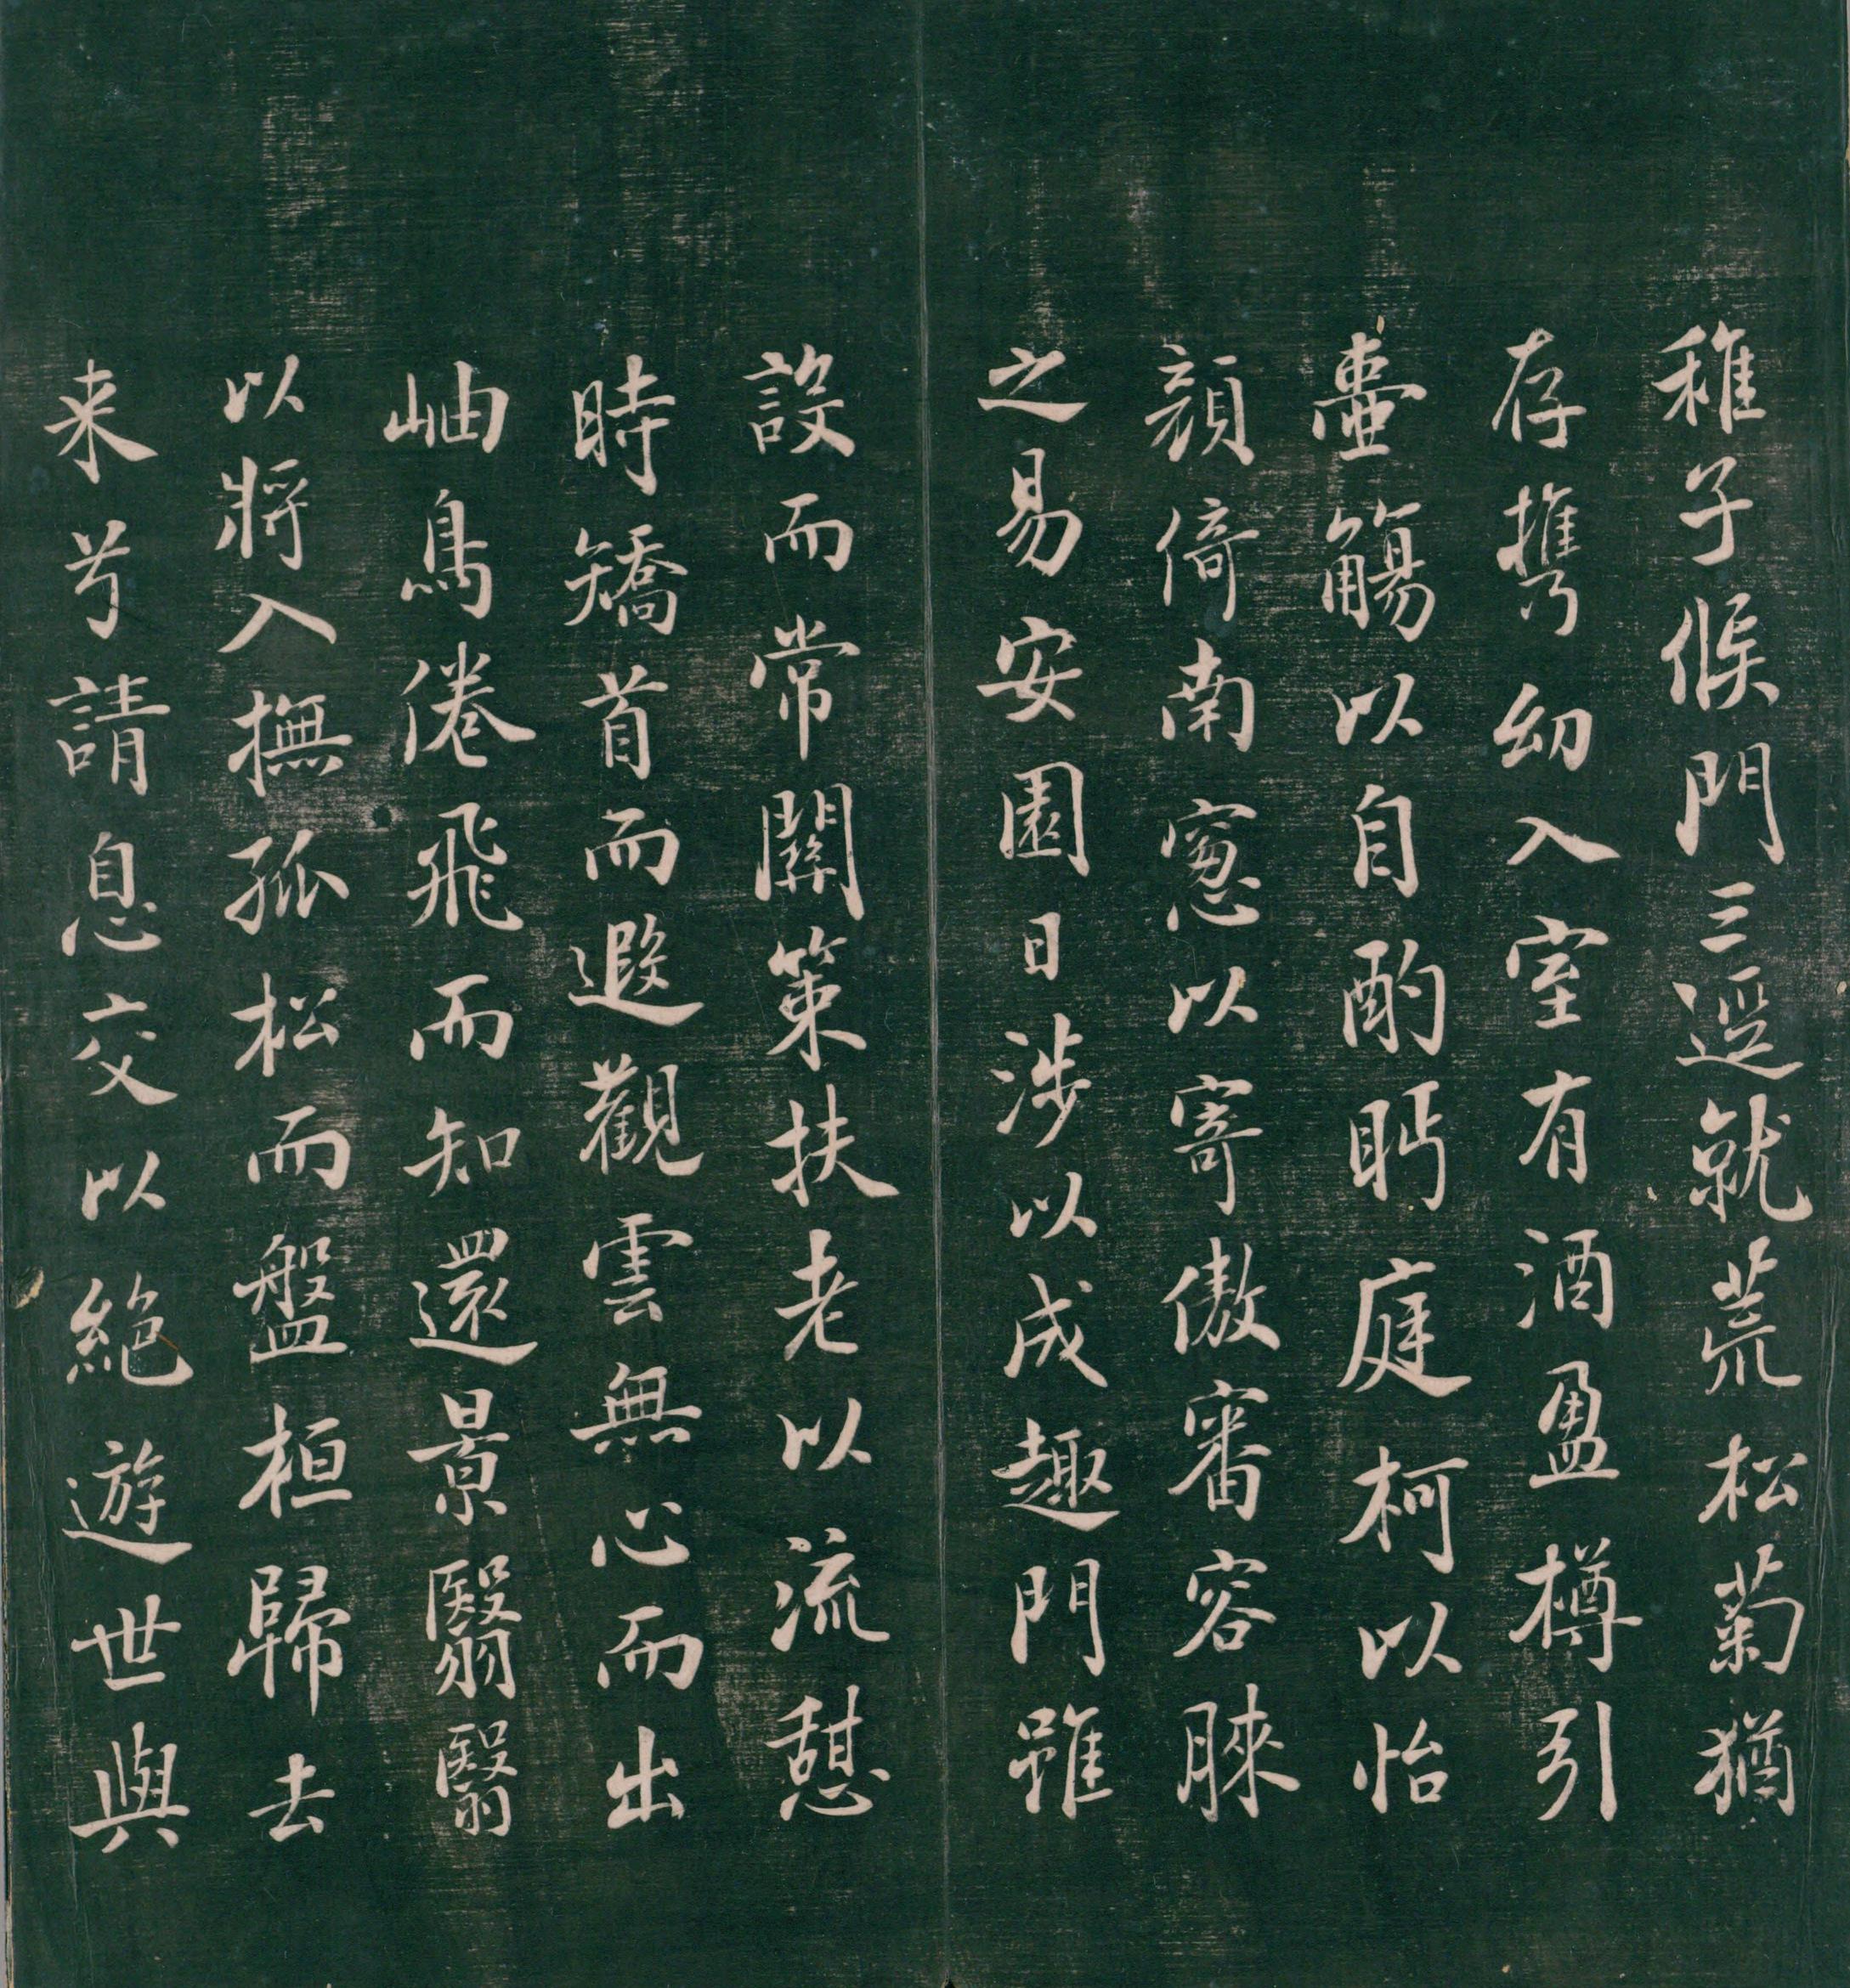 稚子候門三逕就荒松菊猶
存携幼入室有酒盈樽引
壷觴以自酌眄庭柯以怡
顔倚南窓以寄傲審容膝
之易安園日涉以成趣門雖
設而常關策扶老以流憇
時矯首而遐觀雲無心而出
岫鳥倦飛而知還景翳翳
以將入撫孤松而盤桓歸去
来兮請息交以絶遊世與